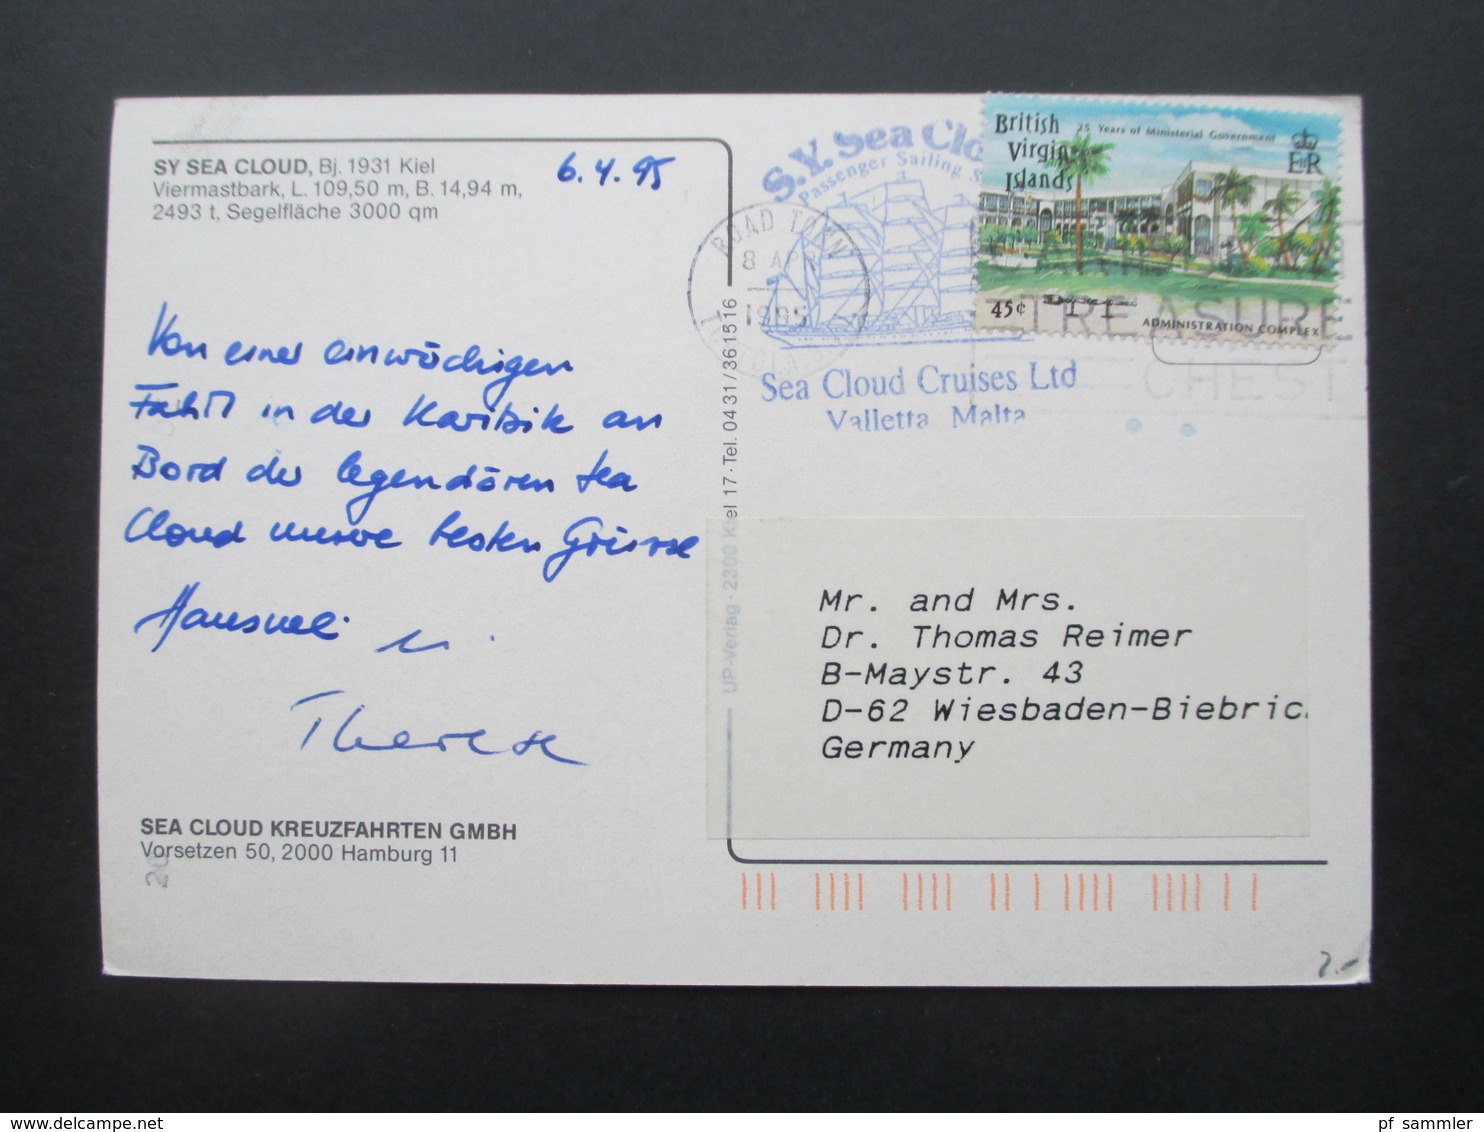 SY SEA CLOUD, Bj. 1931 Kiel
Viermastbark, L. 109,50 m, B. 14,94 m,
2493 t, Segelfläche 3000 qm
6.4.95
Von einer einwöchigen
Fahrt in der Karibik an
Bord der legendären Sea
Cloud unsere besten Grüsse
Therese
SEA CLOUD KREUZFAHRTEN GMBH
Vorsetzen 50, 2000 Hamburg 11
UP-Verlag · 2300 Kiel 17 · Tel. 04 31 / 36 15 16
S.Y. Sea Clo
Passenger Sailing S
ROAD TOWN
8 APR
1995
TORTOLA
Sea Cloud Cruises Ltd
Valletta Malta
British
Virgin
Islands
25 Years of Ministerial Government
ER
45¢
ADMINISTRATION COMPLEX
TREASURE
CHEST
Mr. and Mrs.
Dr. Thomas Reimer
B-Maystr. 43
D-62 Wiesbaden-Biebric
Germany
2.-
pf_sammler